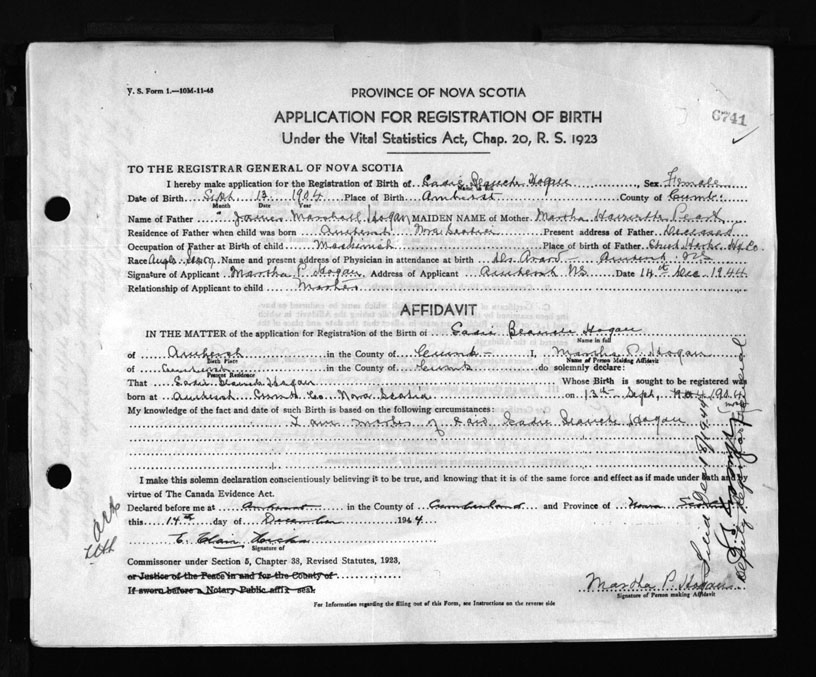 V. S. Form 1.—10M-11-43
PROVINCE OF NOVA SCOTIA
APPLICATION FOR REGISTRATION OF BIRTH
6741
Under the Vital Statistics Act, Chap. 20, R. S. 1923
TO THE REGISTRAR GENERAL OF NOVA SCOTIA
I hereby make application for the Registration of Birth of Eadie Blanche Hogan, Sex Female
Name in full
Date of Birth Sept 13 1904 Place of Birth Amherst County of Cumb.
Month Date Year
Name of Father James Marshall Hogan MAIDEN NAME of Mother Martha
Residence of Father when child was born Amherst Nova Scotia Present address of Father Deceased
Occupation of Father at Birth of child Machinist Place of birth of Father
Race Anglo Saxon Name and present address of Physician in attendance at birth Dr. Amherst NS
Signature of Applicant Martha P. Hogan Address of Applicant Amherst NS. Date 14th Dec. 1944
Relationship of Applicant to child Mother
AFFIDAVIT
IN THE MATTER of the application for Registration of the Birth of Eadie Blanche Hogan
Name in full
of Amherst in the County of Cumb I, Martha P. Hogan
Birth Place Name of Person Making Affidavit
of Amherst in the County of Cumb do solemnly declare:
Present Residence
That Eadie Blanche Hogan Whose Birth is sought to be registered was
born at Amherst Cumb Co. Nova Scotia on 13th Sept. 1904
My knowledge of the fact and date of such Birth is based on the following circumstances:
I am mother of said Eadie Blanche Hogan
I make this solemn declaration conscientiously believing it to be true, and knowing that it is of the same force and effect as if made under oath and by
virtue of The Canada Evidence Act.
Declared before me at Amherst in the County of Cumberland and Province of Nova Scotia
this 14th day of December 1944
E.
Signature of
Commissoner under Section 5, Chapter 38, Revised Statutes, 1923,
or Justice of the Peace in and for the County of
If sworn before a Notary Public affix seal
Martha P. Hogan
Signature of Person making Affidavit
For Information regarding the filling out of this Form, see Instructions on the reverse side
Filed Dec 18/1944
Deputy Registrar General